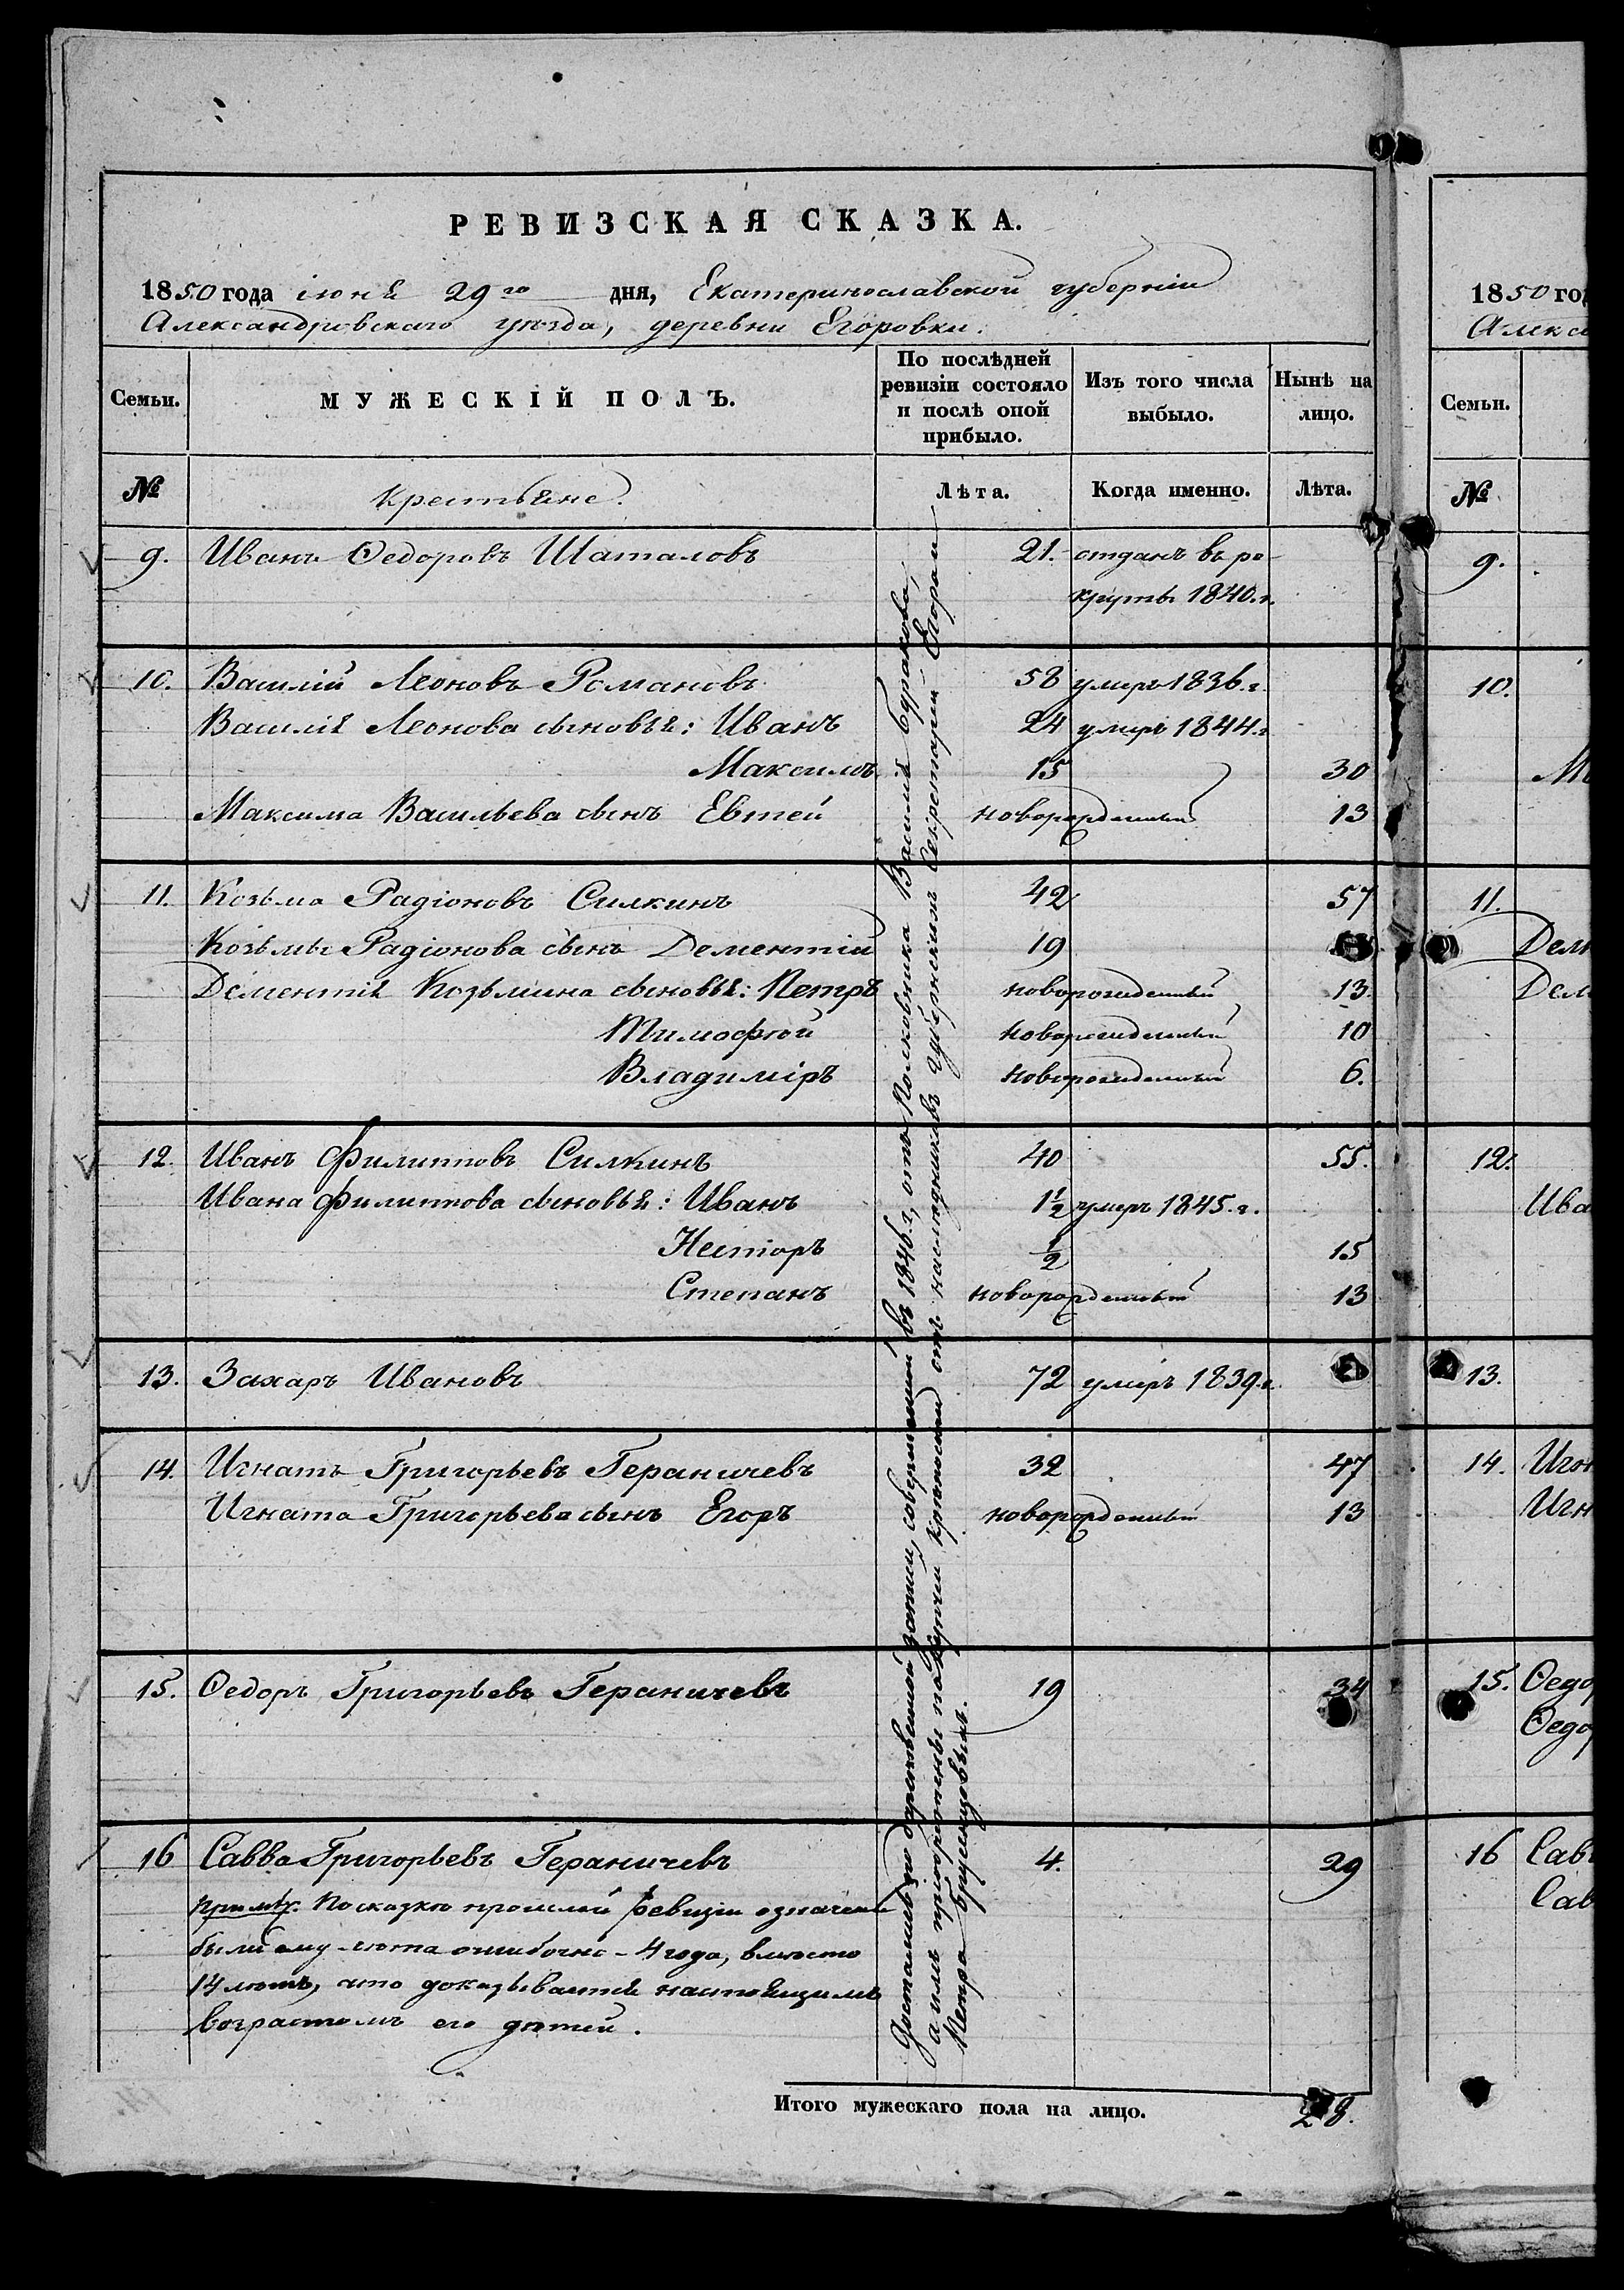 РЕВИЗСКАЯ СКАЗКА.
1850 года іюня 29го дня, Екатеринославской губерніи
Александровскаго уѣзда, деревни Егоровки.
Семьи. МУЖЕСКІЙ ПОЛЪ. По послѣдней ревизіи состояло и послѣ оной прибыло. Изъ того числа выбыло. Нынѣ на лицо.
№ Крестьяне. Лѣта. Когда именно. Лѣта.
9. Иванъ Ѳедоровъ Шаталовъ 21. отданъ въ ре-
круты 1840.г.
10. Василій Леоновъ Романовъ 58 умеръ 1836.г.
Василія Леонова сыновья: Иванъ 24 умеръ 1844.г
Максимъ 15 30
Максима Васильева сынъ Евтей новорожденный 13
11. Козьма Радіоновъ Силкинъ 42 57
Козьмы Радіонова сынъ Дементій 19
Дементія Козьмина сыновья: Петръ новорожденный 13.
Тимофѣй новорожденный 10
Владиміръ новорожденный 6.
12. Иванъ Филипповъ Силкинъ 40 55.
Ивана Филиппова сыновья: Иванъ 1½ умеръ 1845.г.
Несторъ ½ 15
Степанъ новорожденный 13
13. Захаръ Ивановъ 72 умеръ 1839.г.
14. Игнатъ Григорьевъ Гераничевъ 32 47
Игната Григорьева сынъ Егоръ новорожденный 13
15. Ѳедоръ Григорьевъ Гераничевъ 19 34
16 Савва Григорьевъ Гераничевъ 4. 29
Примѣч. По сказкѣ прошлой ревизіи означены
были ему лѣта ошибочно – 4 года, вмѣсто
14 лѣтъ, что доказывается настоящимъ
возрастомъ его дѣтей.
Достались по дарственной записи, совершенной въ 1846.г, отъ Полковника Василія Буракова,
а имъ пріобрѣтены по купчей крѣпости отъ наслѣдниковъ Губернскимъ Секретарей Егора и
Петра
Итого мужескаго пола на лицо. 28.
1850 год
Алекса
Семьи.
№
9.
10.
М
11.
Дем
Дем
12.
Ива
13.
14. Игн
Игн
15. Ѳедо
Ѳедо
16 Сав
Сав